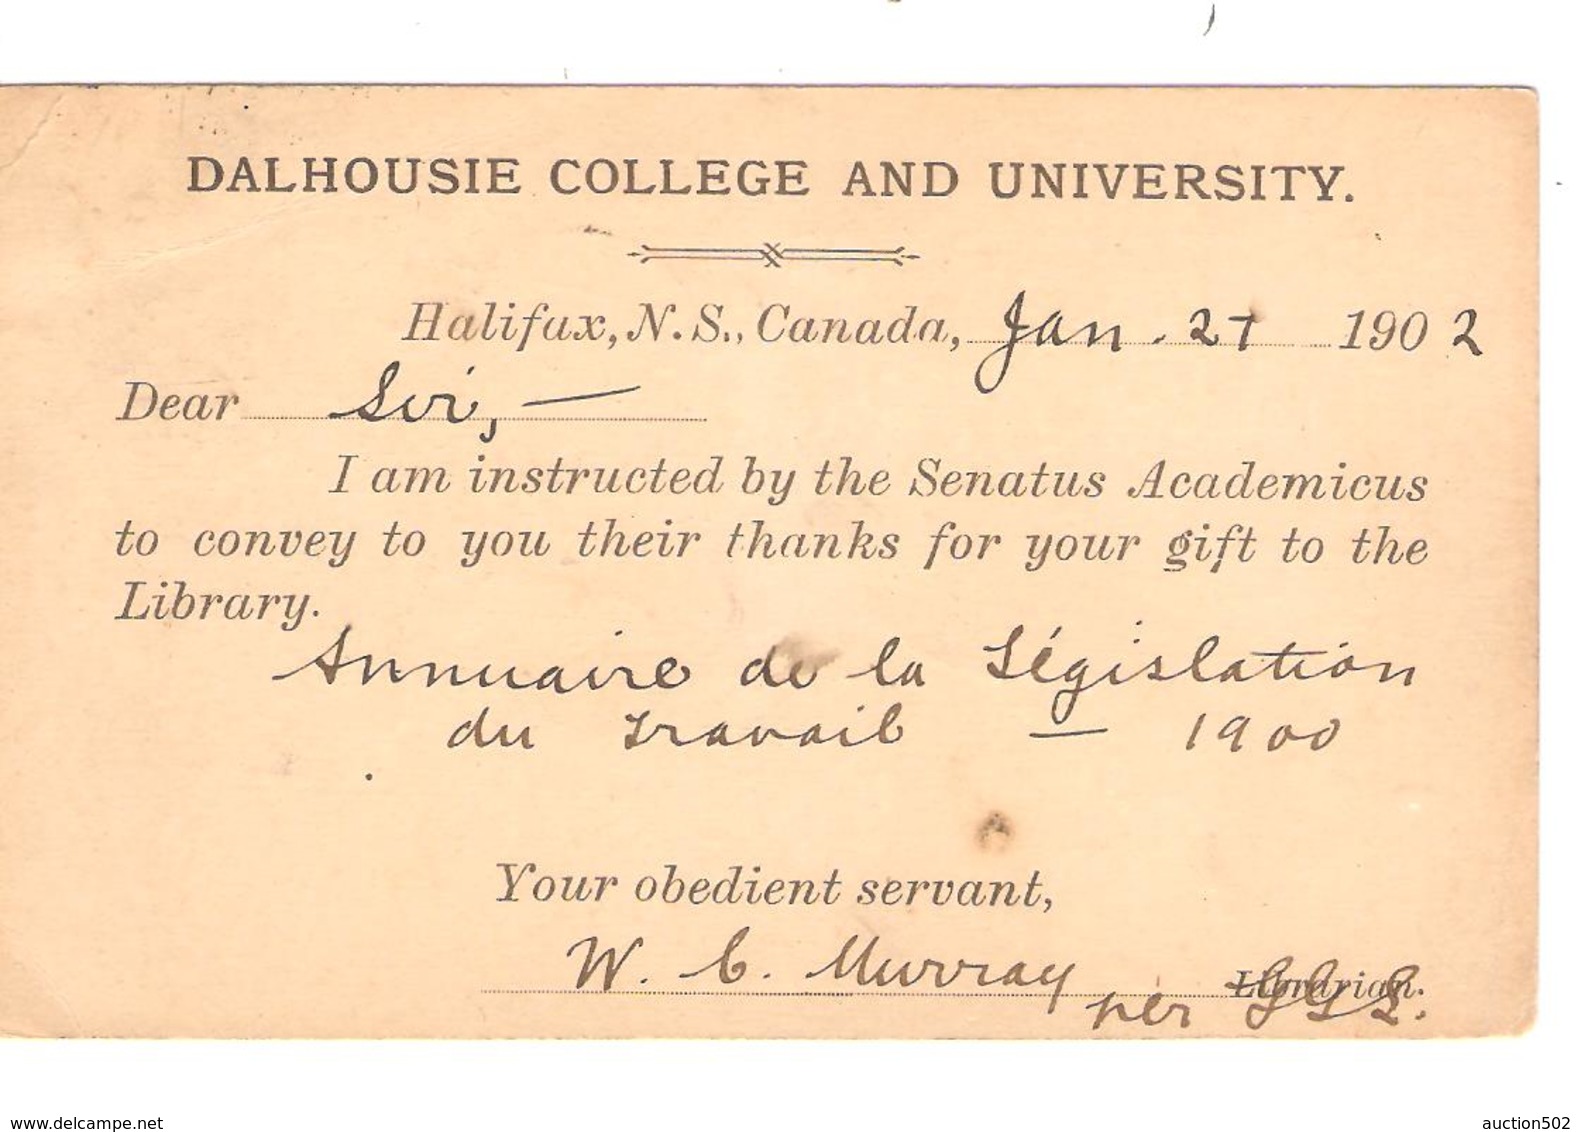 DALHOUSIE COLLEGE AND UNIVERSITY.
Halifax, N.S., Canada, Jan. 27 1902
Dear Sir, —
I am instructed by the Senatus Academicus
to convey to you their thanks for your gift to the
Library.
Annuaire de la Législation
du Travail — 1900
Your obedient servant,
W. C. Murray Librarian.
per
www.delcampe.net
auction502